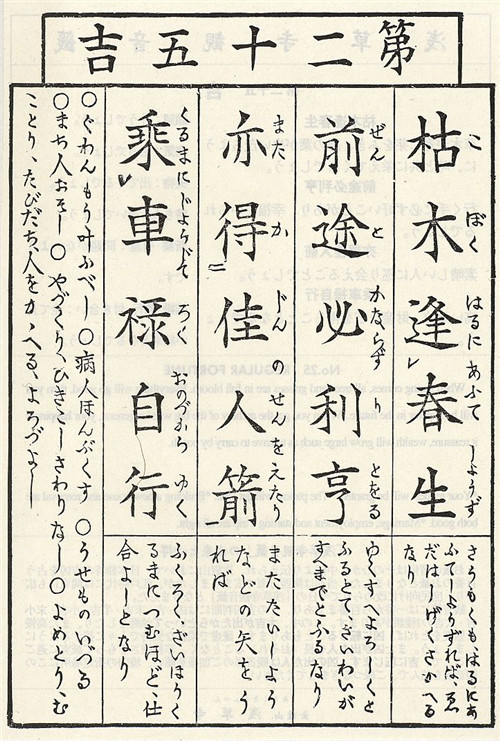 第二十五吉
こ ぼく はるに あふて しやうず
枯木逢春生
きも、はるにあ
ふてしやうずれば、ゑ
だはしげくさかへる
なり
ぜん と かならず とをる
前途必利亨
ゆくすへよろしくと
ふるとてさいわいが
すへまでとふるなり
また か じんの せんをえたり
亦得佳人箭
などの矢をう
れば
くるまにじやうじて ろく おのづから ゆく
乗車禄自行
ふくろくざいほうく
るまにつむほど、仕
合よしとなり
〇ぐわんもうかなふべし 〇病人ほんぷくす 〇うせものいづる
〇まち人おそし 〇やづくり、ひきこしさわりなし 〇よめとり、む
ことり、たびだち、人をかゝへる、よろづよし